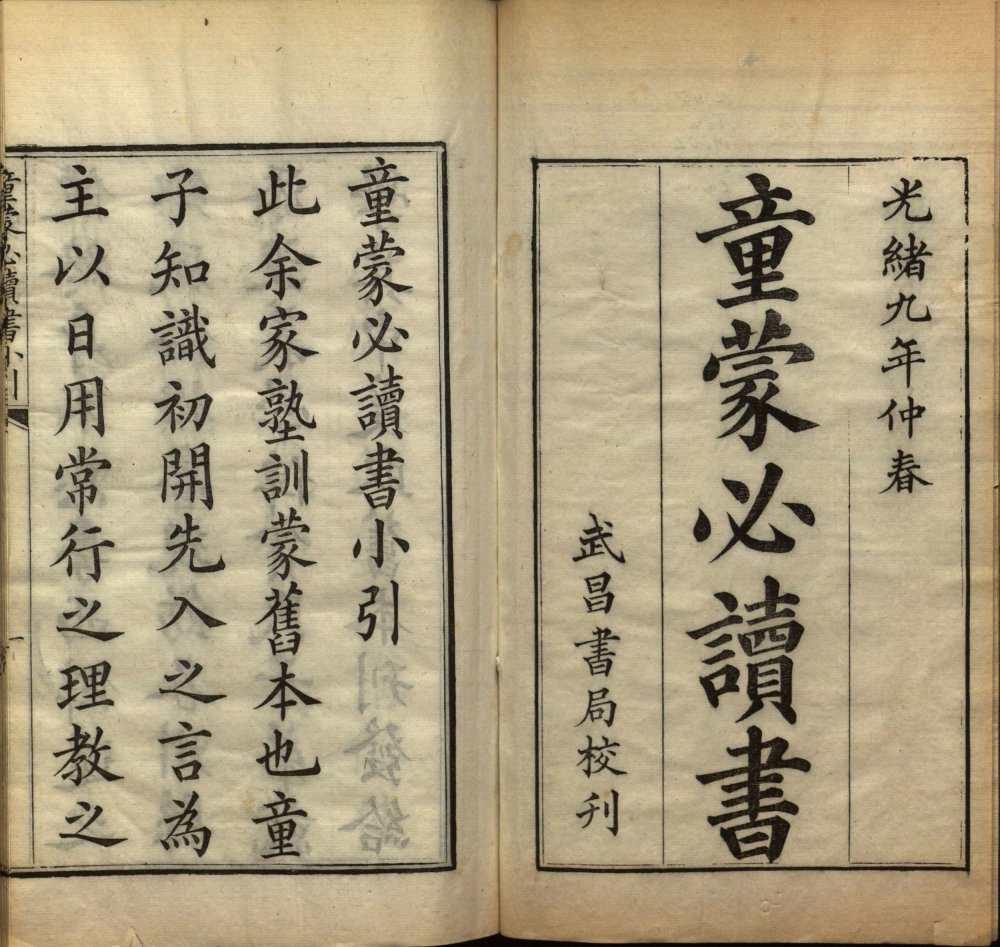 光緒九年仲春
童蒙必讀書
武昌書局校刊
童蒙必讀書小引
此余家塾訓蒙舊本也童
子知識初開先入之言為
主以日用常行之理教之
童蒙必讀書小引
一